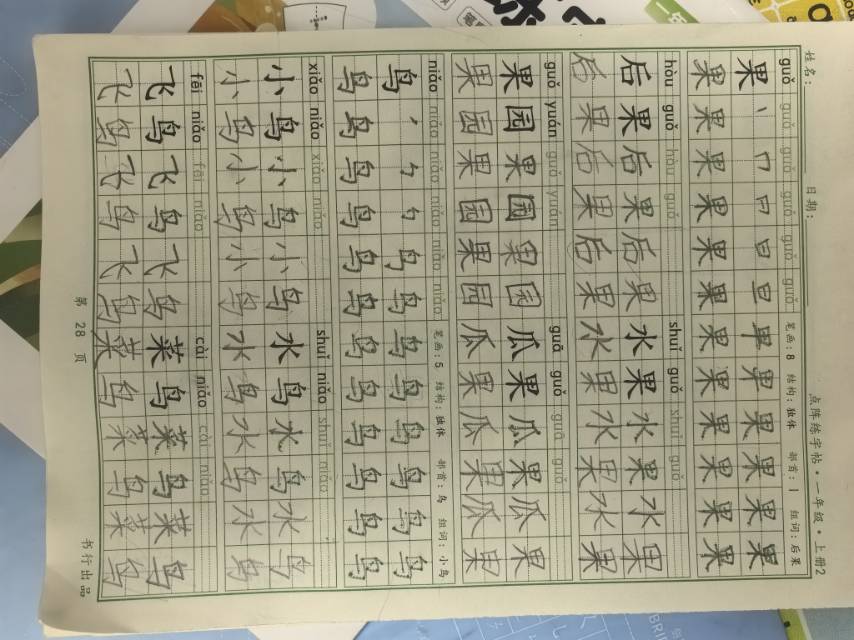 点阵练字帖·一年级·上册2
姓名: 日期:
guǒ guǒ guǒ guǒ guǒ guǒ 笔画:8 结构:独体 部首:丨 组词:后果
果 丨 冂 日 日 旦 早 果 果 果 果 果
果 果 果 果 果 果 果 果 果 果 果 果
hòu guǒ hòu guǒ shuǐ guǒ shuǐ guǒ
后 果 后 果 后 果 水 果 水 果 水 果
后 果 后 果 后 果 水 果 水 果 水 果
guǒ yuán guǒ yuán guā guǒ guā guǒ
果 园 果 园 果 园 瓜 果 瓜 果 瓜 果
果 园 果 园 果 园 瓜 果 瓜 果 瓜 果
niǎo niǎo niǎo niǎo niǎo niǎo 笔画:5 结构:独体 部首:鸟 组词:小鸟
鸟 丿 勹 勹 鸟 鸟 鸟 鸟 鸟 鸟 鸟 鸟
鸟 鸟 鸟 鸟 鸟 鸟 鸟 鸟 鸟 鸟 鸟 鸟
xiǎo niǎo xiǎo niǎo shuǐ niǎo shuǐ niǎo
小 鸟 小 鸟 小 鸟 水 鸟 水 鸟 水 鸟
小 鸟 小 鸟 小 鸟 水 鸟 水 鸟 水 鸟
fēi niǎo fēi niǎo cài niǎo cài niǎo
飞 鸟 飞 鸟 飞 鸟 菜 鸟 菜 鸟 菜 鸟
飞 鸟 飞 鸟 飞 鸟 菜 鸟 菜 鸟 菜 鸟
第 28 页 书行出品